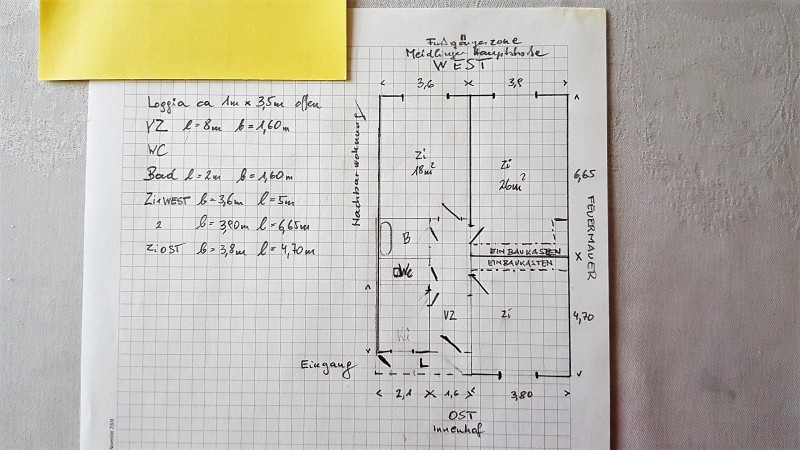 Fußgängerzone
Meidlinger Hauptstraße
WEST
3,6
3,9
Loggia ca 1m x 3,5m offen
VZ l = 8m b = 1,60m
WC
Bad l = 2m b = 1,60m
Zi 1 WEST b = 3,6m l = 5m
2 b = 3,90m l = 6,65m
Zi OST b = 3,8m l = 4,70m
Nachbarwohnung
Zi
18m²
Zi
26m²
6,65
FEUERMAUER
B
EINBAUKASTEN
EINBAUKASTEN
WC
VZ
Zi
4,70
Wi
Eingang
L
2,1
1,6
3,80
OST
Innenhof